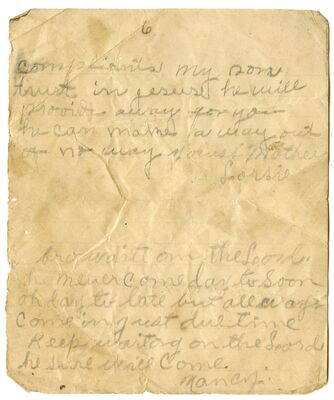 6
complaints my son
trust in jesus he will
provide away for you
he can make a way out
of no way your Mother
Lorsie
bro wait om the Lord
he never come day to soon
or day to late but allways
come in just due time
Keep waiting on the Lord
he sure will come.
Nancy.